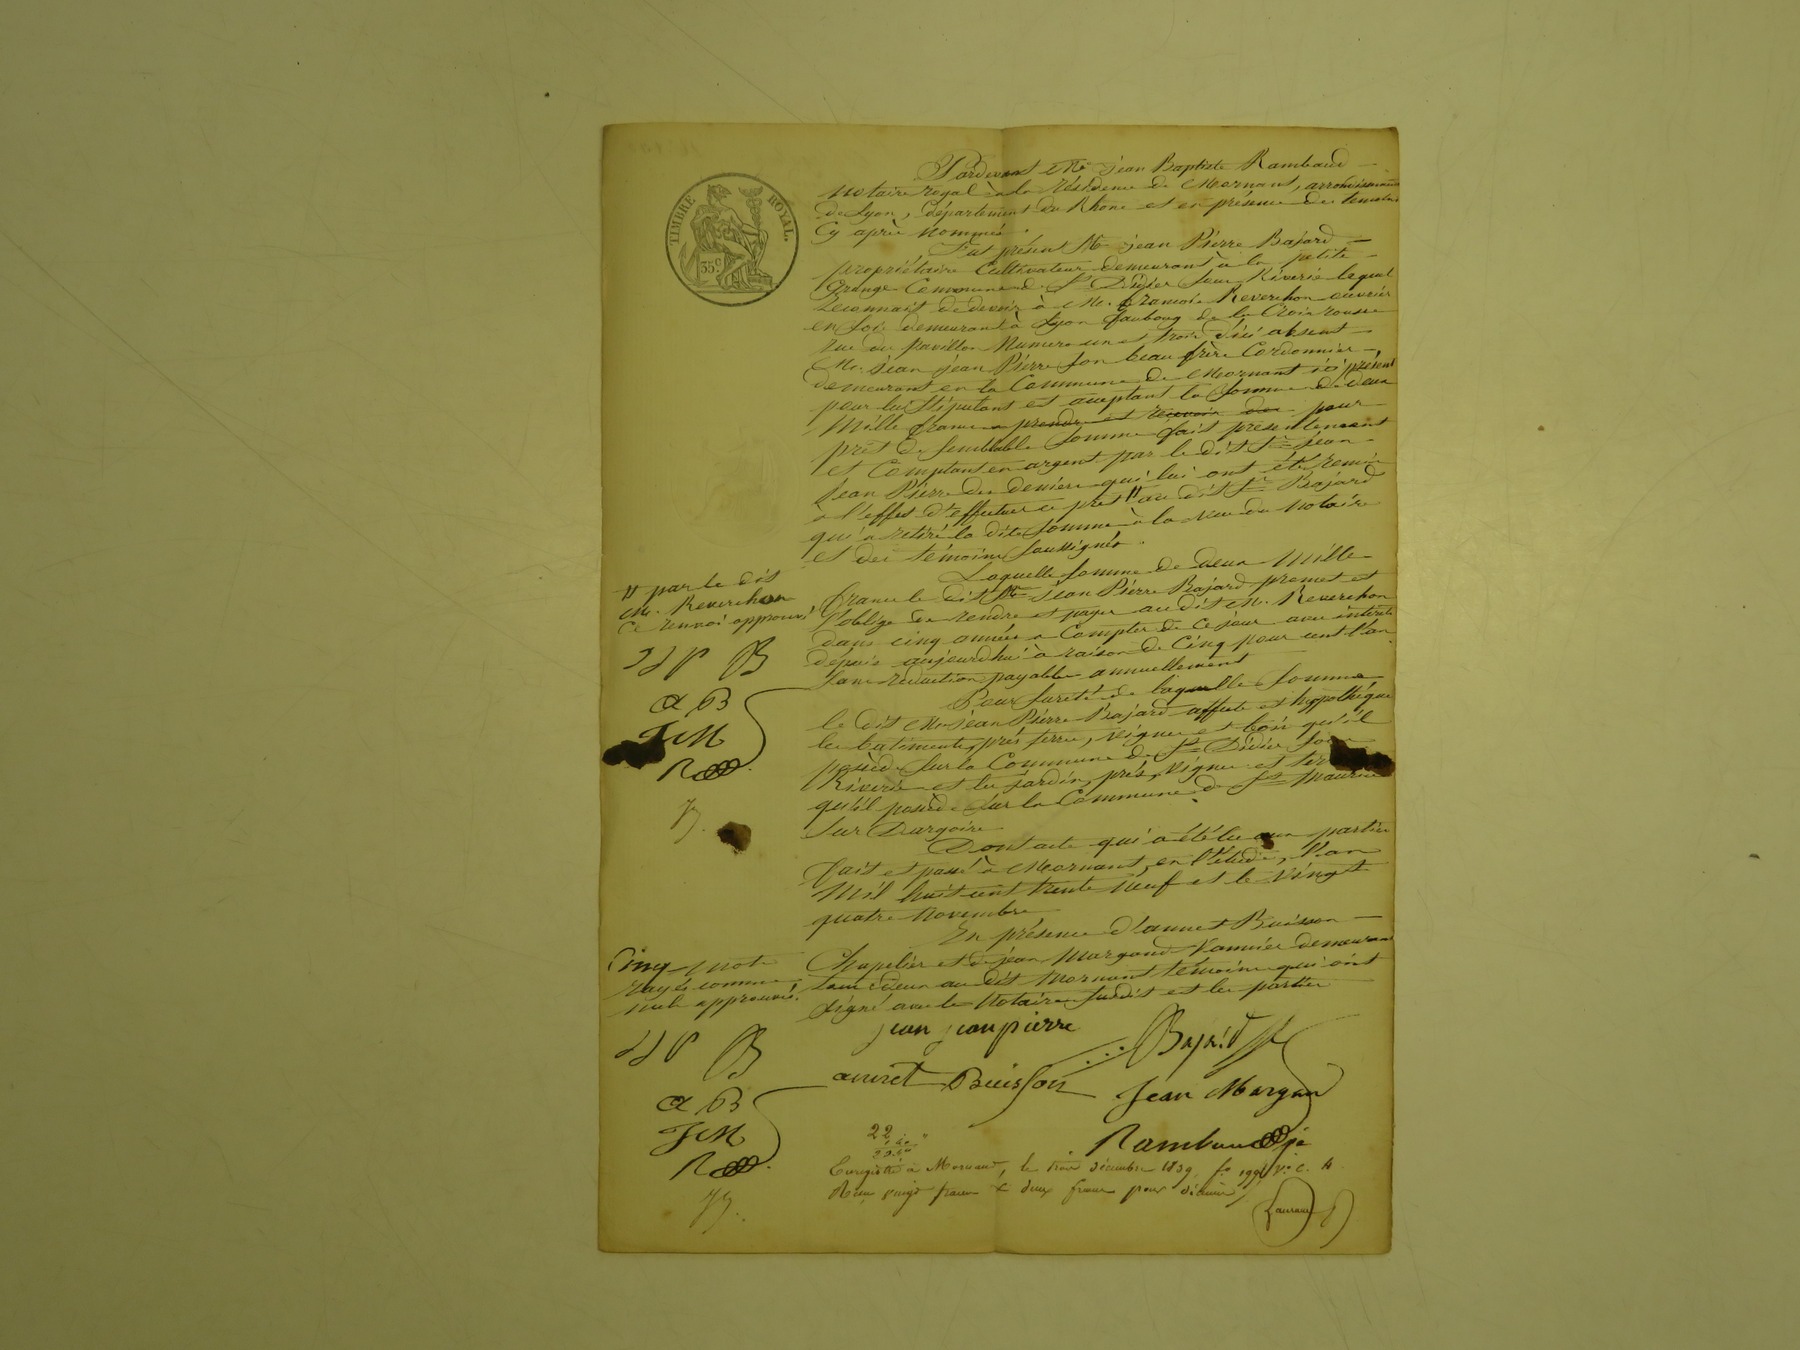 TIMBRE ROYAL.
35 c
Pardevant Me jean Baptiste Rambaud
notaire royal à la résidence de Mornant, arrondissement
de Lyon, département du Rhône et en présence des temoins
Cy après nommés.
Fut présent Mr jean Pierre Bajard
propriétaire Cultivateur demeurant à la petite
Grange Commune de St Didier sous Riverie lequel
reconnait de devoir à Mr. françois Reverchon ouvrier
en soie demeurant à Lyon faubourg de la Croix rousse
rue du pavillon Numero un et trois d'ici absent
Mr. Jean jean Pierre son beau frère Cordonnier
demeurant en la Commune de Mornant ici présent
pour lui Stipulant et acceptant la somme de deux
Mille francs a prendre et recevoir des pour
prêt de semblable somme fait présentement
et Comptant en argent par le dit Sr Jean
Jean Pierre des deniers qui lui ont été remis
à l'effet d'effectuer ce prêt // au dit Sr Bajard
qui a retiré la dite somme à la vue du Notaire
et des témoins soussignés.
Laquelle somme de deux Mille
francs le dit Mr Jean Pierre Bajard promet et
s'oblige de rendre et payer au dit Mr. Reverchon
dans cinq années a Compter de ce jour avec intérêts
dépuis aujourdhui à raison de Cinq pour cent l'an
sans réduction payables annuellement
Pour sureté de laquelle somme
le dit Mr Jean Pierre Bajard affecte et hypothéque
les batiments, prés terre, vignes et bois qu'il
posséde sur la Commune de St Didier sous
Riverie et les jardin, prés, vignes et
qu'il posséde sur la Commune de St Maurice
sur Dargoire
Dont acte qui a été lu aux parties
fait et passé à Mornant, en l'étude, l'an
Mil huit cent trente neuf et le vingt
quatre Novembre
En présence d'annet Buisson
Chapelier et de jean Margand Vannier demeurant
tous deux au dit Mornant témoins qui ont
signé avec le Notaire susdit et les parties
// par le dit
Mr. Reverchon
ce renvoi approuvé
JJP B
a B
JM
R
Cinq mots
rayés comme
nuls approuvés.
JJP B
a B
JM
R
jean jeanpierre
Bajard
annet Buisson
Jean Margan
Rambaud
22
Enregistré à Mornant, le trois décembre 1839, fo
Reçu vingt francs & deux francs pour décime